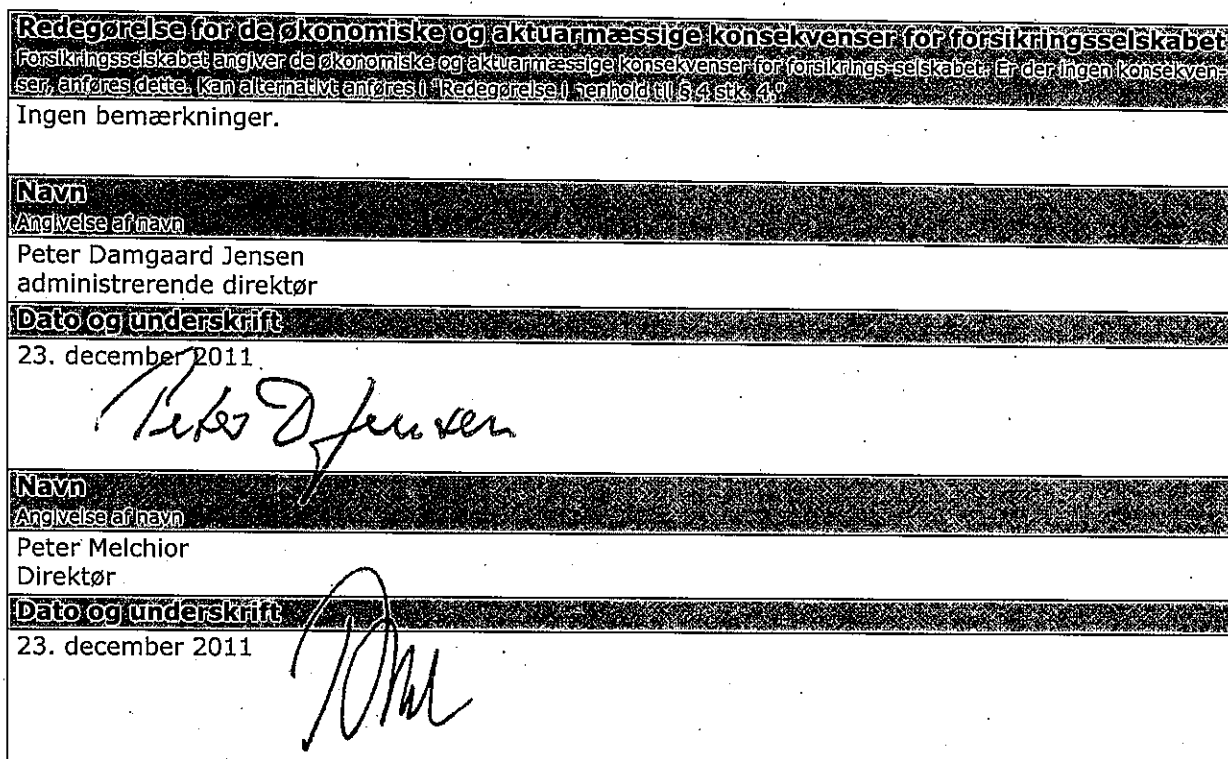 Redegørelse for de økonomiske og aktuarmæssige konsekvenser for forsikringsselskabet
Forsikringsselskabet angiver de økonomiske og aktuarmæssige konsekvenser for forsikrings-selskabet. Er der ingen konsekven-
ser, anføres dette. Kan alternativt anføres i "Redegørelse i henhold til § 4 stk. 4."
Ingen bemærkninger.
Navn
Angivelse af navn
Peter Damgaard Jensen
administrerende direktør
Dato og underskrift
23. december 2011
Peter D Jensen
Navn
Angivelse af navn
Peter Melchior
Direktør
Dato og underskrift
23. december 2011